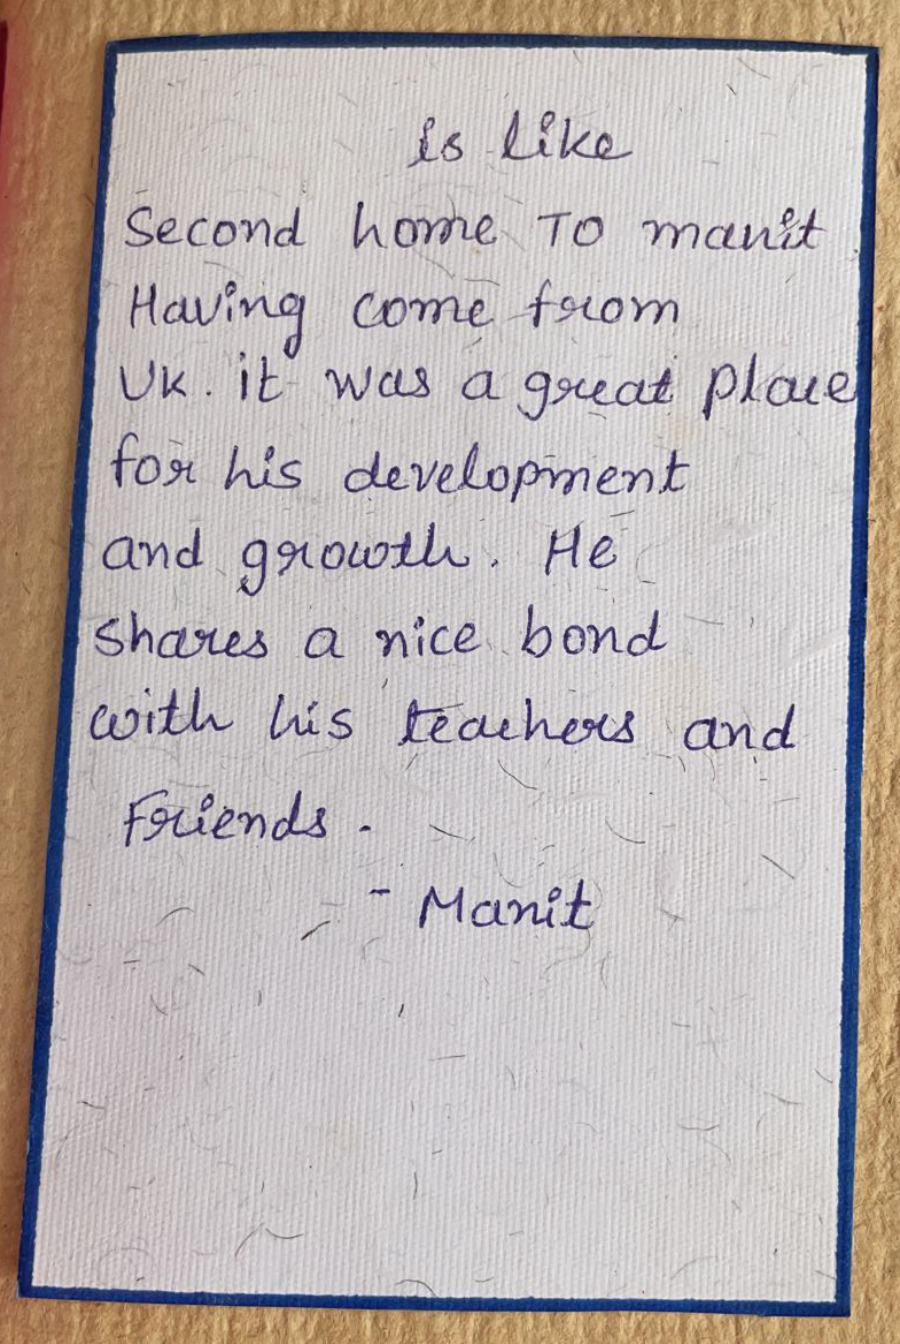 is like
Second home To manit.
Having come from
UK. it was a great place
for his development
and growth. He
shares a nice bond
with his teachers and
Friends.
- Manit